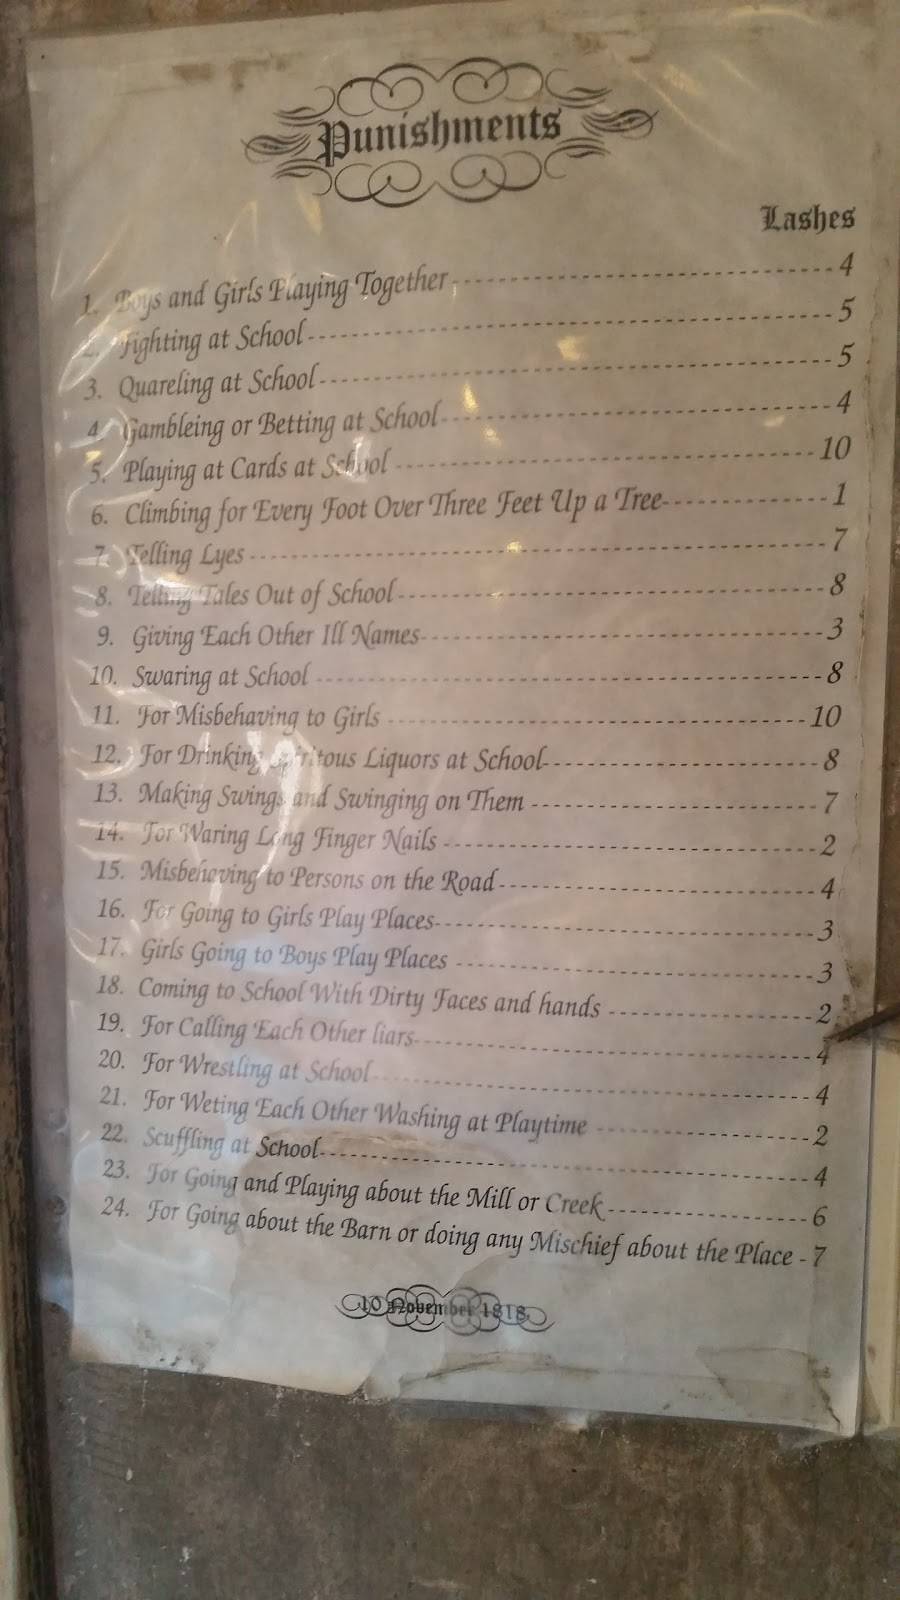 Punishments
Lashes
1. Boys and Girls Playing Together 4
2. Fighting at School 5
3. Quareling at School 5
4. Gambleing or Betting at School 4
5. Playing at Cards at School 10
6. Climbing for Every Foot Over Three Feet Up a Tree 1
7. Telling Lyes 7
8. Telling Tales Out of School 8
9. Giving Each Other Ill Names 3
10. Swaring at School 8
11. For Misbehaving to Girls 10
12. For Drinking Spiritous Liquors at School 8
13. Making Swings and Swinging on Them 7
14. For Waring Long Finger Nails 2
15. Misbehaving to Persons on the Road 4
16. For Going to Girls Play Places 3
17. Girls Going to Boys Play Places 3
18. Coming to School With Dirty Faces and hands 2
19. For Calling Each Other liars 4
20. For Wrestling at School 4
21. For Weting Each Other Washing at Playtime 2
22. Scuffling at School 4
23. For Going and Playing about the Mill or Creek 6
24. For Going about the Barn or doing any Mischief about the Place - 7
10 November 1818